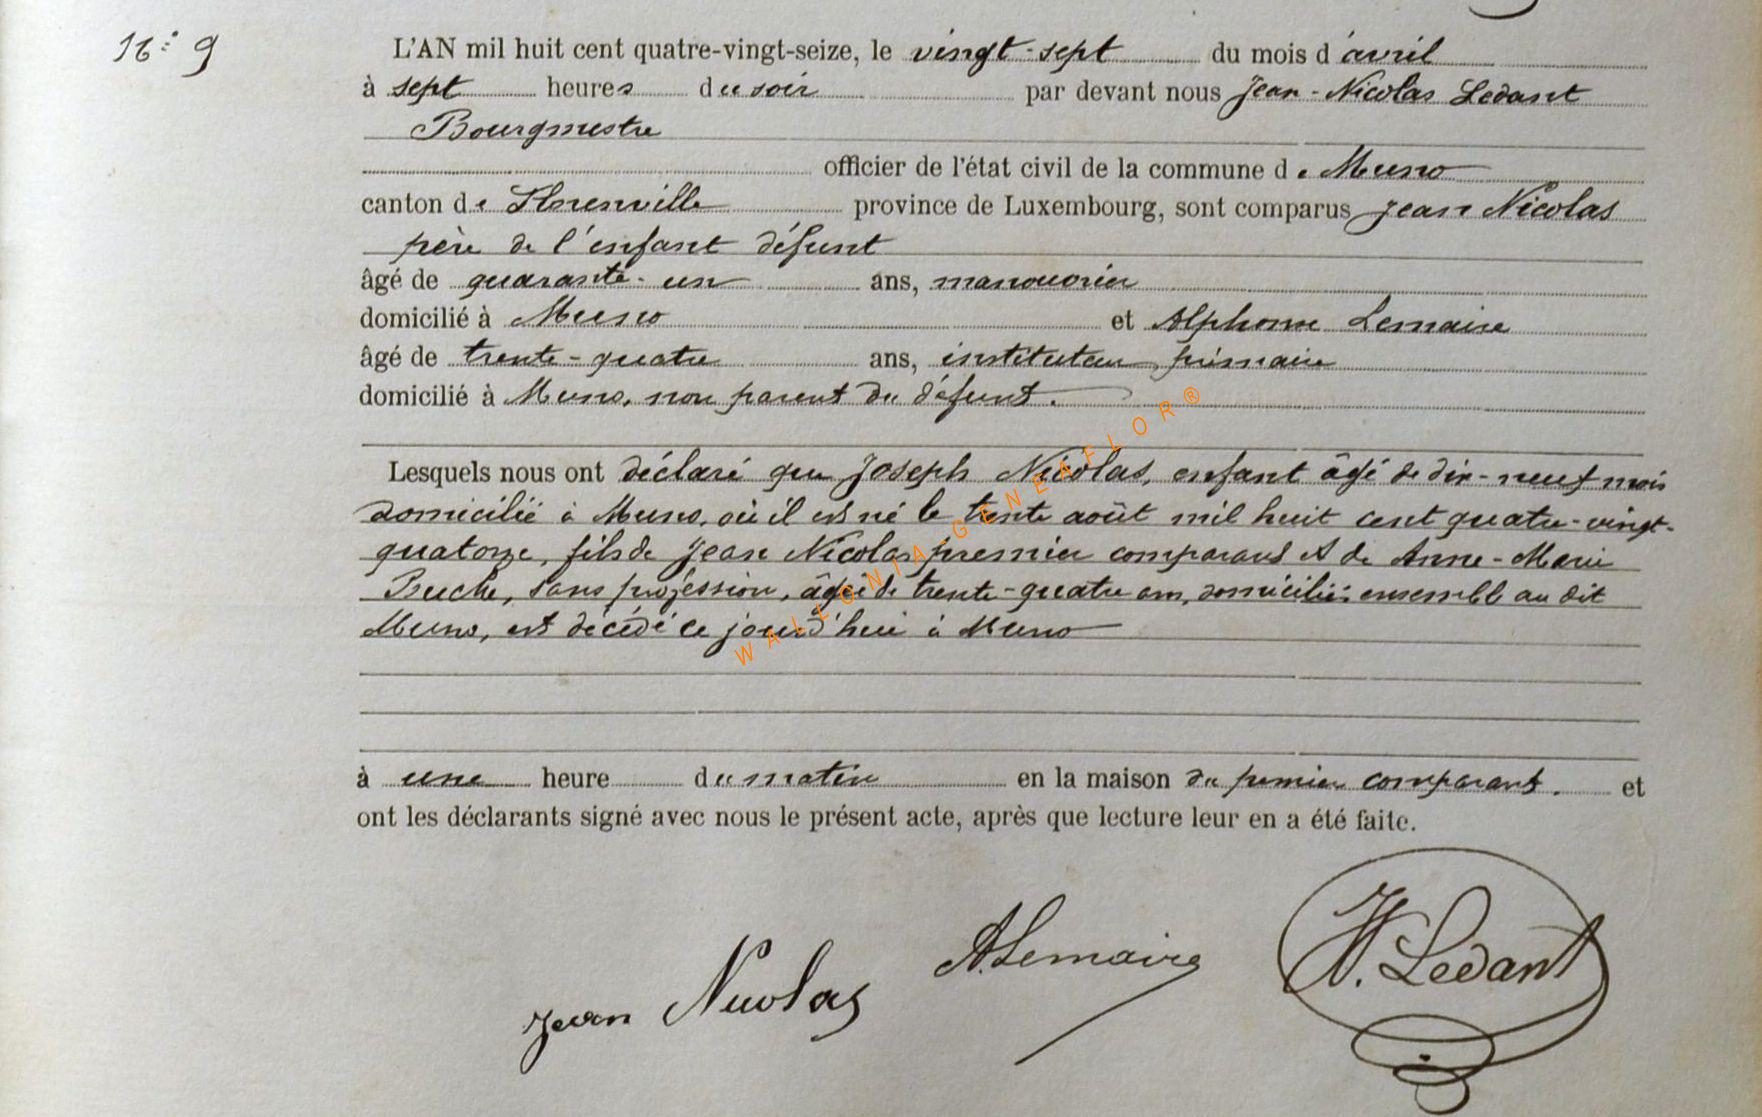 N° 9
L'AN mil huit cent quatre-vingt-seize, le vingt-sept du mois d'avril
à sept heures du soir par devant nous Jean-Nicolas Ledant
Bourgmestre
officier de l'état civil de la commune de Muno
canton de Florenville province de Luxembourg, sont comparus Jean Nicolas
père de l'enfant défunt
âgé de quarante-un ans, manouvrier
domicilié à Muno et Alphonse Lemaire
âgé de trente-quatre ans, instituteur primaire
domicilié à Muno, non parent du défunt.
Lesquels nous ont déclaré que Joseph Nicolas, enfant âgé de dix-neuf mois
domicilié à Muno, où il est né le trente août mil huit cent quatre-vingt-
quatorze, fils de Jean Nicolas premier comparant et de Anne-Marie
Buche, sans profession, âgée de trente-quatre ans, domiciliés ensemble au dit
Muno, est décédé ce jourd'hui à Muno
à une heure du matin en la maison du premier comparant. et
ont les déclarants signé avec nous le présent acte, après que lecture leur en a été faite.
Jean Nicolas A. Lemaire N. Ledant
WALLONIA-GENEAFLOR®